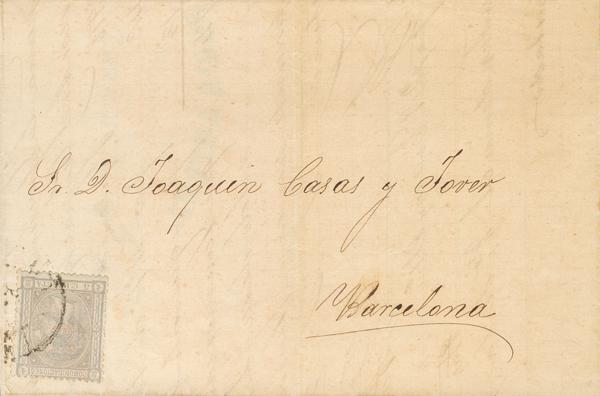 Sr. D. Joaquin Casas y Jover
Barcelona